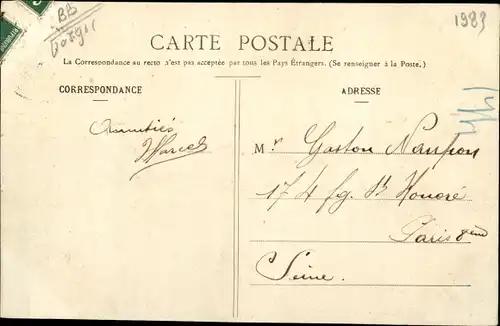 BB
1983
CARTE POSTALE
La Correspondance au recto n'est pas acceptée par tous les Pays Étrangers. (Se renseigner à la Poste.)
CORRESPONDANCE
Amitiés
Marcel
ADRESSE
M.r Gaston
174 fg. St Honoré
Paris 8ème
Seine.